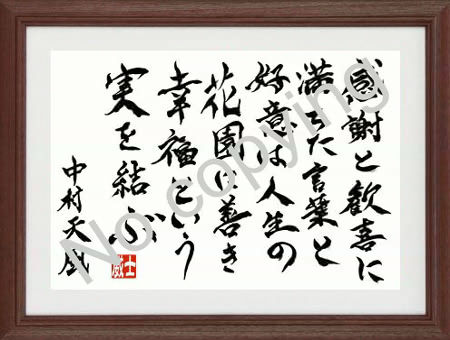 感謝と歓喜に
満ちた言葉と
好意は人生の
花園に善き
幸福という
実を結ぶ
中村天風
No copying